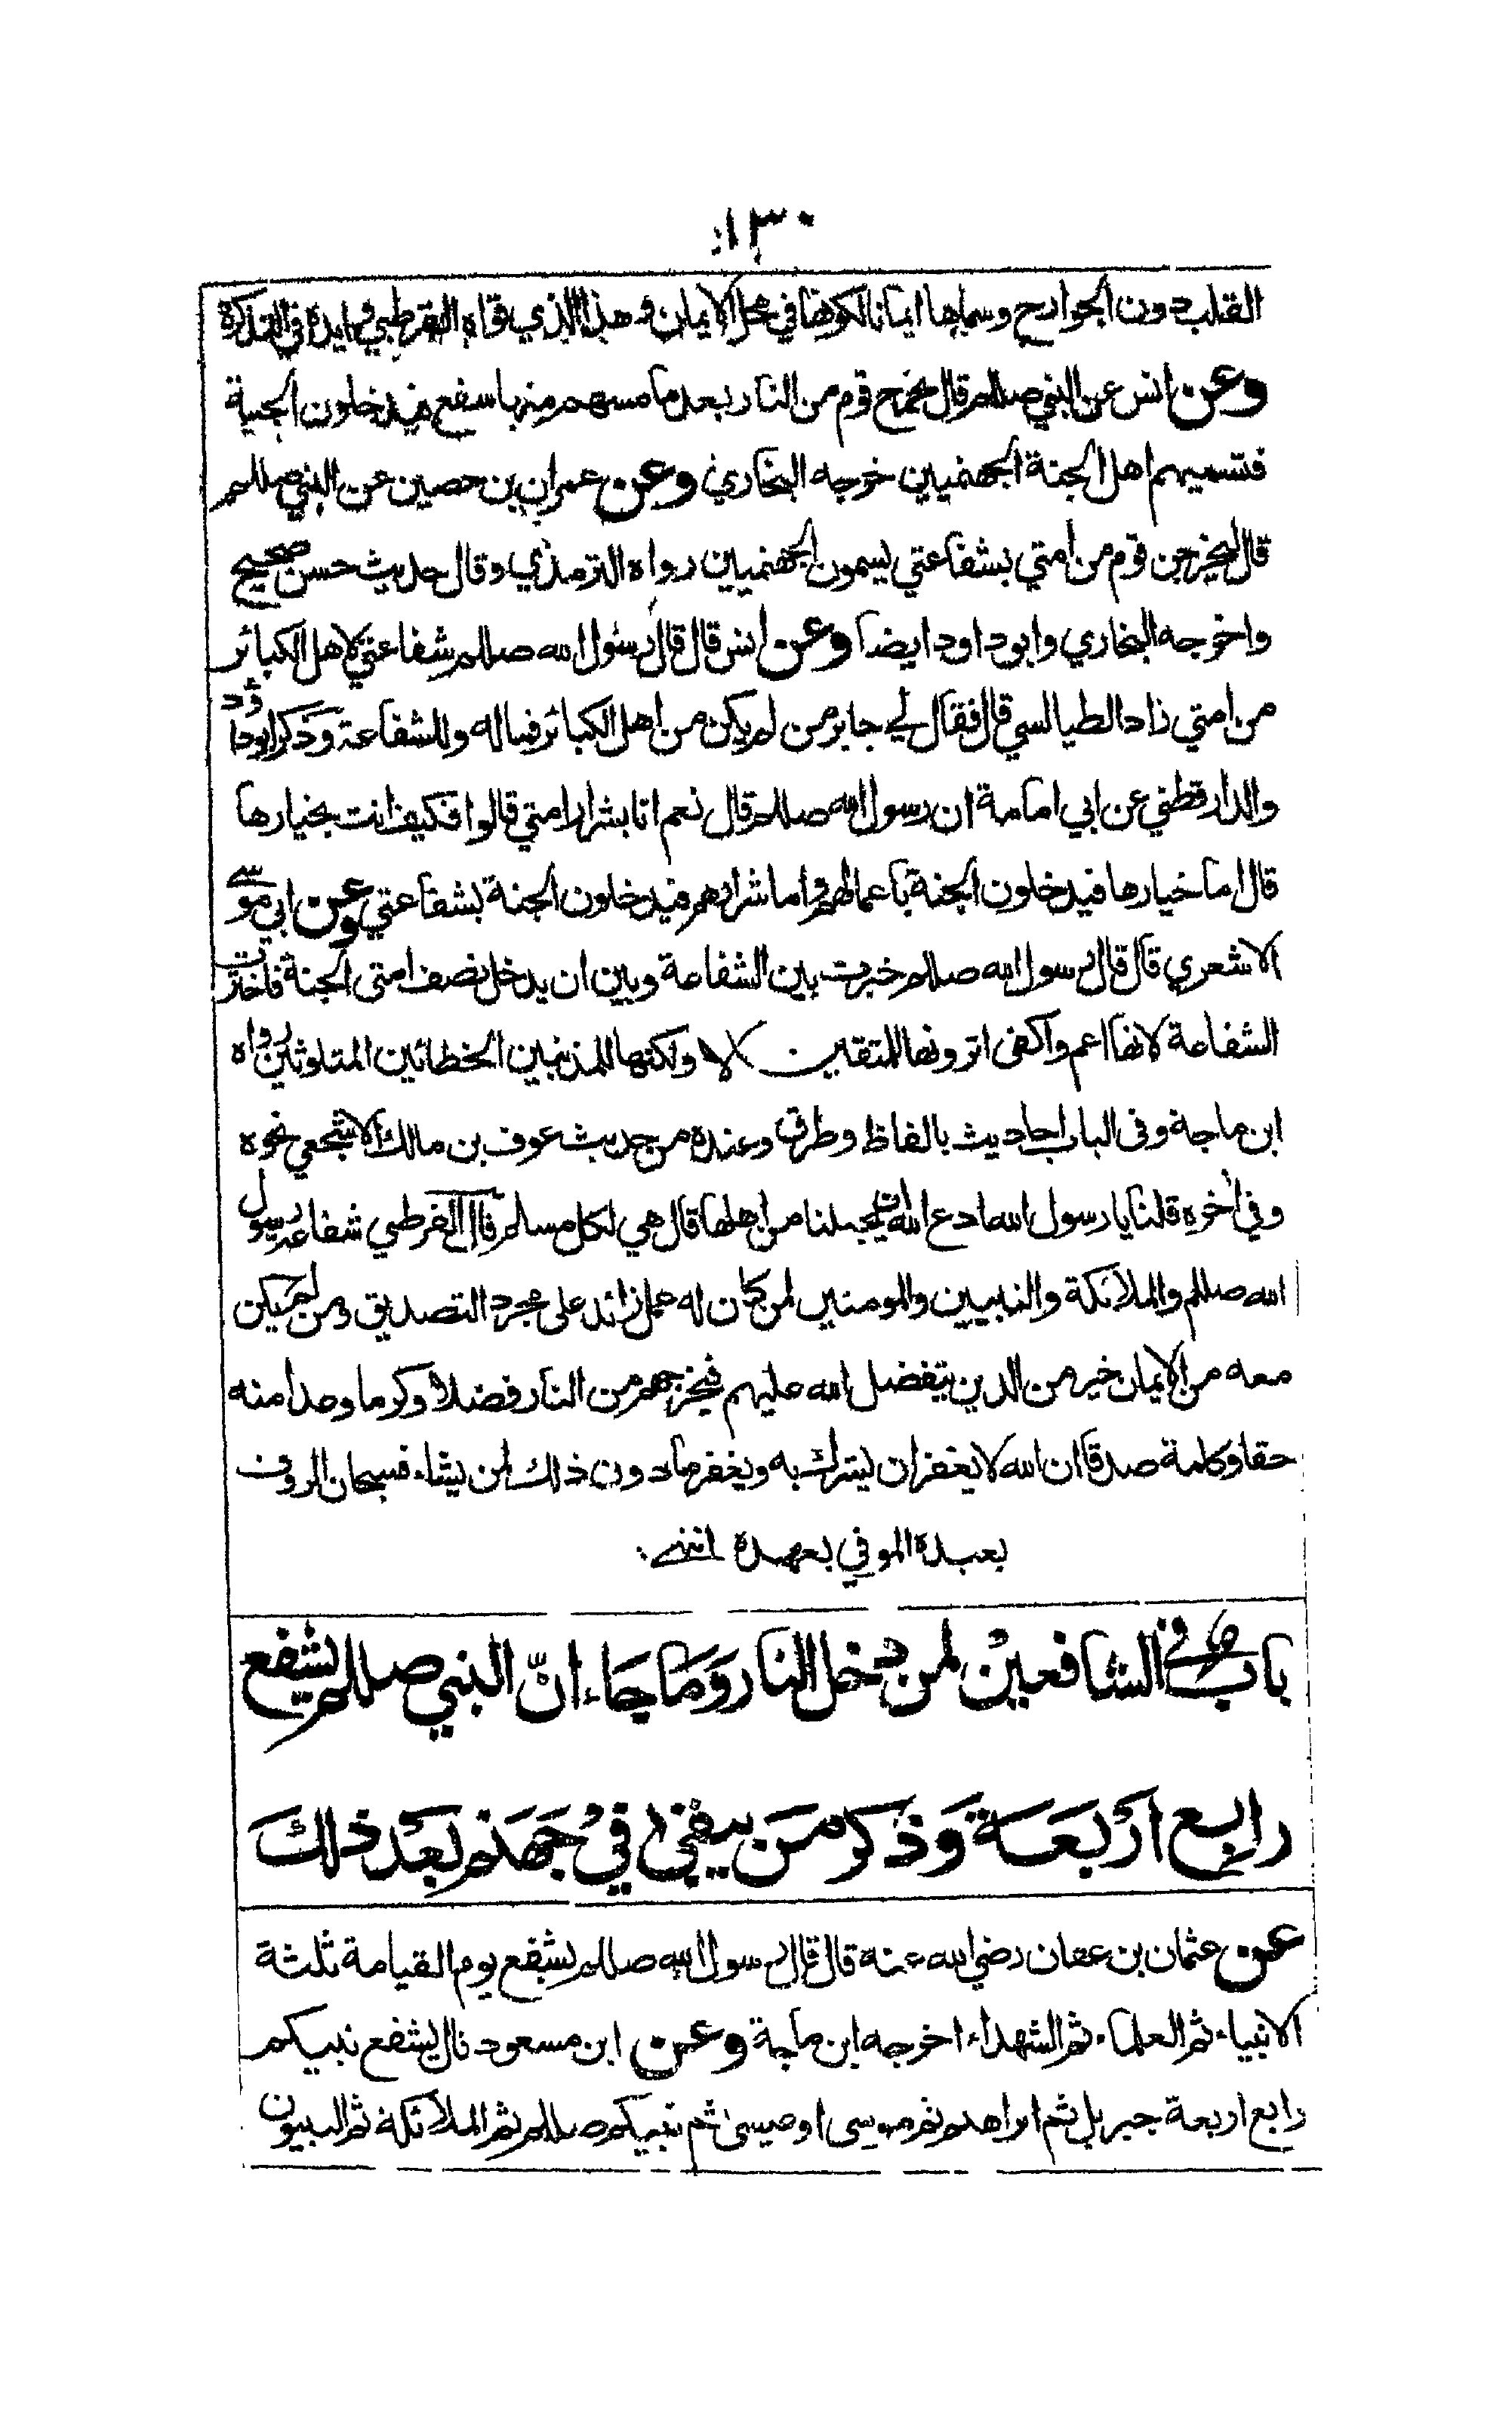 ١٣٠
القلب دون الجوارح وسماها ايمانا لكونها في محل الايمان وهذا الذي قواه القرطبي وايده في التذكرة
وعن انس عن النبي صللم قال يخرج قوم من النار بعد ما مسهم منها سفع فيدخلون الجنة
فتسميهم اهل الجنة الجهنميين خرجه البخاري وعن عمران بن حصين عن النبي صللم
قال ليخرجن قوم من امتي بشفاعتي يسمون الجهنميين رواه الترمذي وقال حديث حسن صحيح
واخرجه البخاري وابو داود ايضا وعن انس قال قال رسول الله صللم شفاعتي لاهل الكبائر
من امتي زاد الطيالسي قال فقال لي جابر من لم يكن من اهل الكبائر فما له وللشفاعة وذكر ابو داؤد
والدار قطني عن ابي امامة ان رسول الله صللم قال نعم انا بشرار امتي قالوا فكيف انت بخيارها
قال اما خيارها فيدخلون الجنة باعمالهم واما شرارهم فيدخلون الجنة بشفاعتي وعن ابي موسى
الاشعري قال قال رسول الله صللم خيرت بين الشفاعة وبين ان يدخل نصف امتى الجنة فاخترت
الشفاعة لانها اعم واكفى اترونها للمتقين لا ولكنها للمذنبين الخطائين المتلوثين رواه
ابن ماجة وفى الباب احاديث بالفاظ وطرق وعنده من حديث عوف بن مالك الاشجعي نحوه
وفي اخره قلنا يا رسول الله ادع الله ان يجعلنا من اهلها قال هي لكل مسلم قال القرطبي شفاعة رسول
الله صللم والملائكة والنبيين والمومنين لمن كان له عمل زائد على مجرد التصديق ومن لم يكن
معه من الايمان خير من الذين يتفضل الله عليهم فيخرجهم من النار فضلا وكرما وعدا منه
حقا وكلمة صدقا ان الله لا يغفر ان يشرك به ويغفر ما دون ذلك لمن يشاء فسبحان الروف
بعبده الموفي بعهده انتهى
باب في الشافعين لمن دخل النار وما جاء انّ النبي صللم يشفع
رابع اربعة وذكر من يبقى في جهنم بعد ذلك
عن عثمان بن عفان رضي الله عنه قال قال رسول الله صللم يشفع يوم القيامة ثلثة
الانبياء ثم العلماء ثم الشهداء اخرجه ابن ماجة وعن ابن مسعود قال يشفع نبيكم
رابع اربعة جبريل ثم ابراهيم ثم موسى او عيسى ثم نبيكم صللم ثم الملائكة ثم النبيون